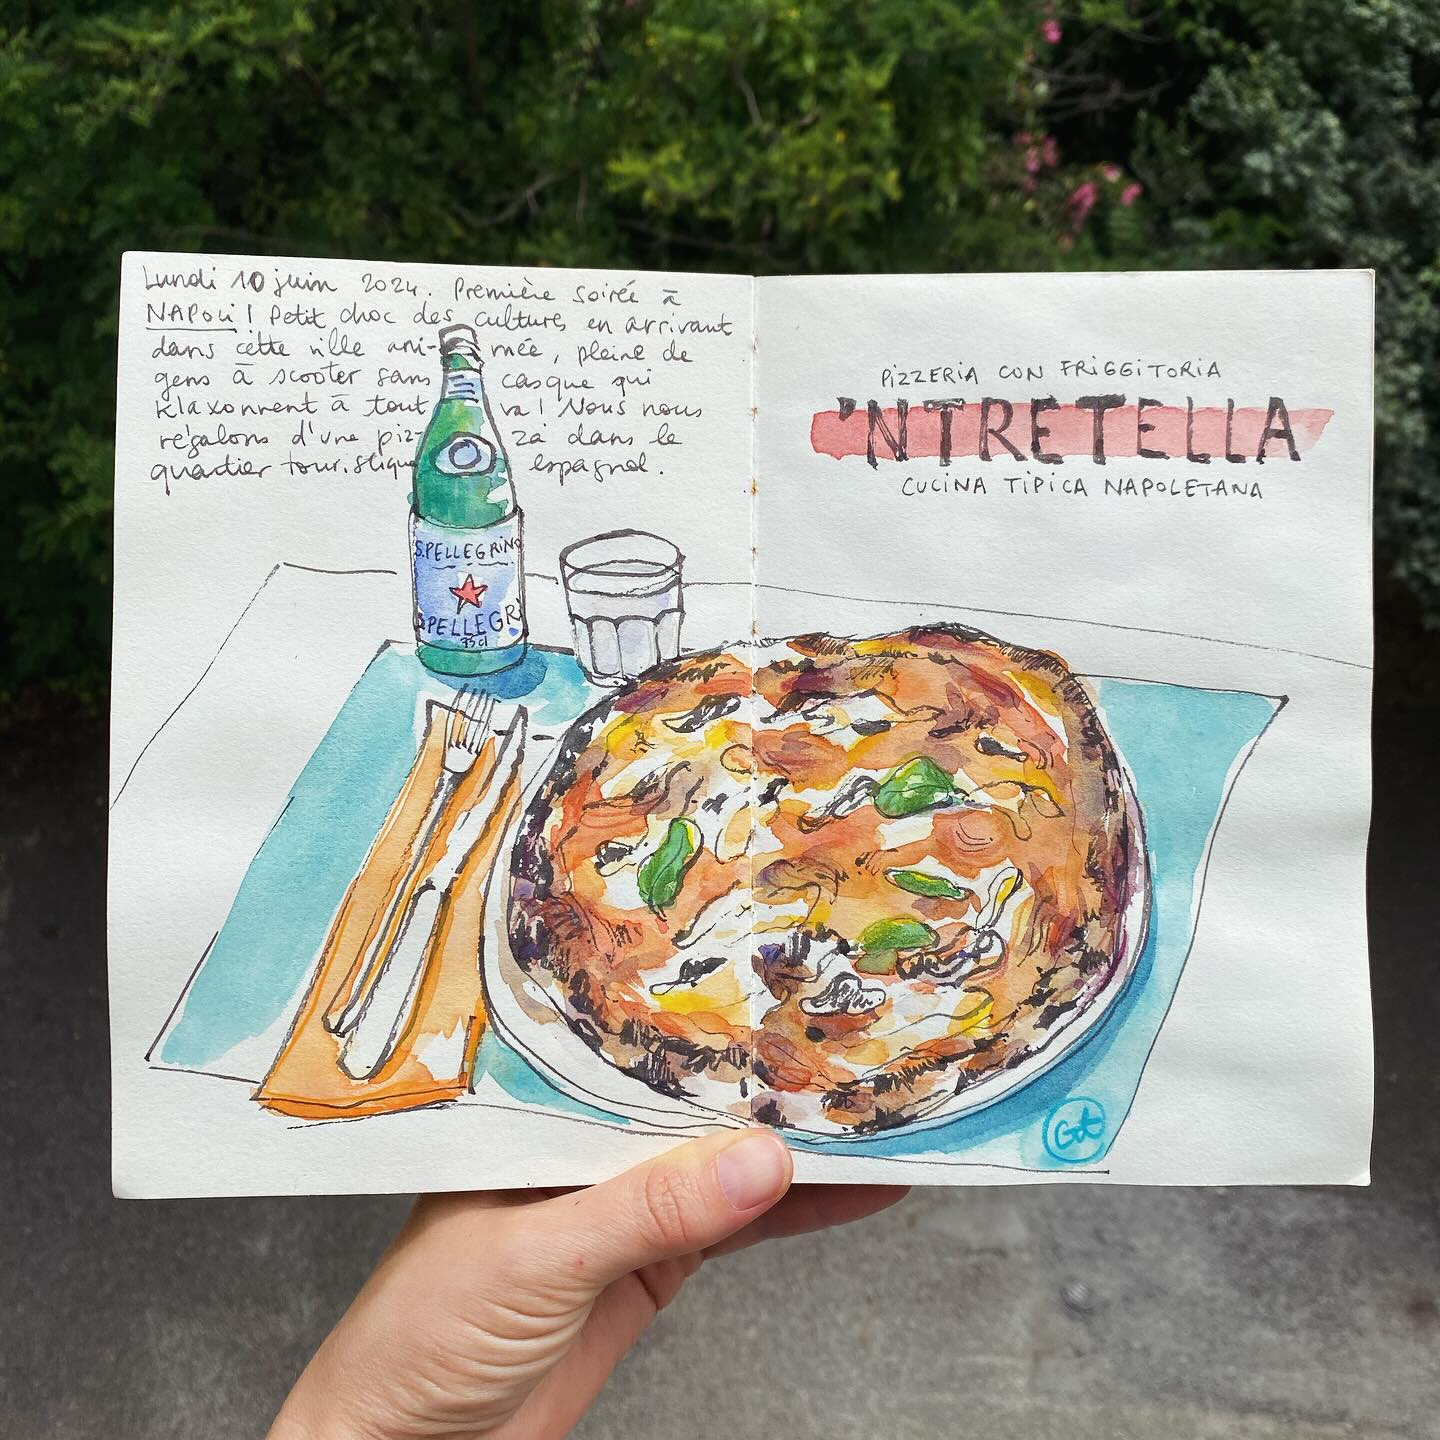 Lundi 10 juin 2024. Première soirée à
NAPOLI ! Petit choc des cultures en arrivant
dans cette ville ani- mée, pleine de
gens à scooter sans casque qui
klaxonnent à tout va ! Nous nous
régalons d'une piz- za dans le
quartier touristique espagnol.
PIZZERIA CON FRIGGITORIA
'NTRETELLA
CUCINA TIPICA NAPOLETANA
S.PELLEGRINO
S.PELLEGRI
75cl